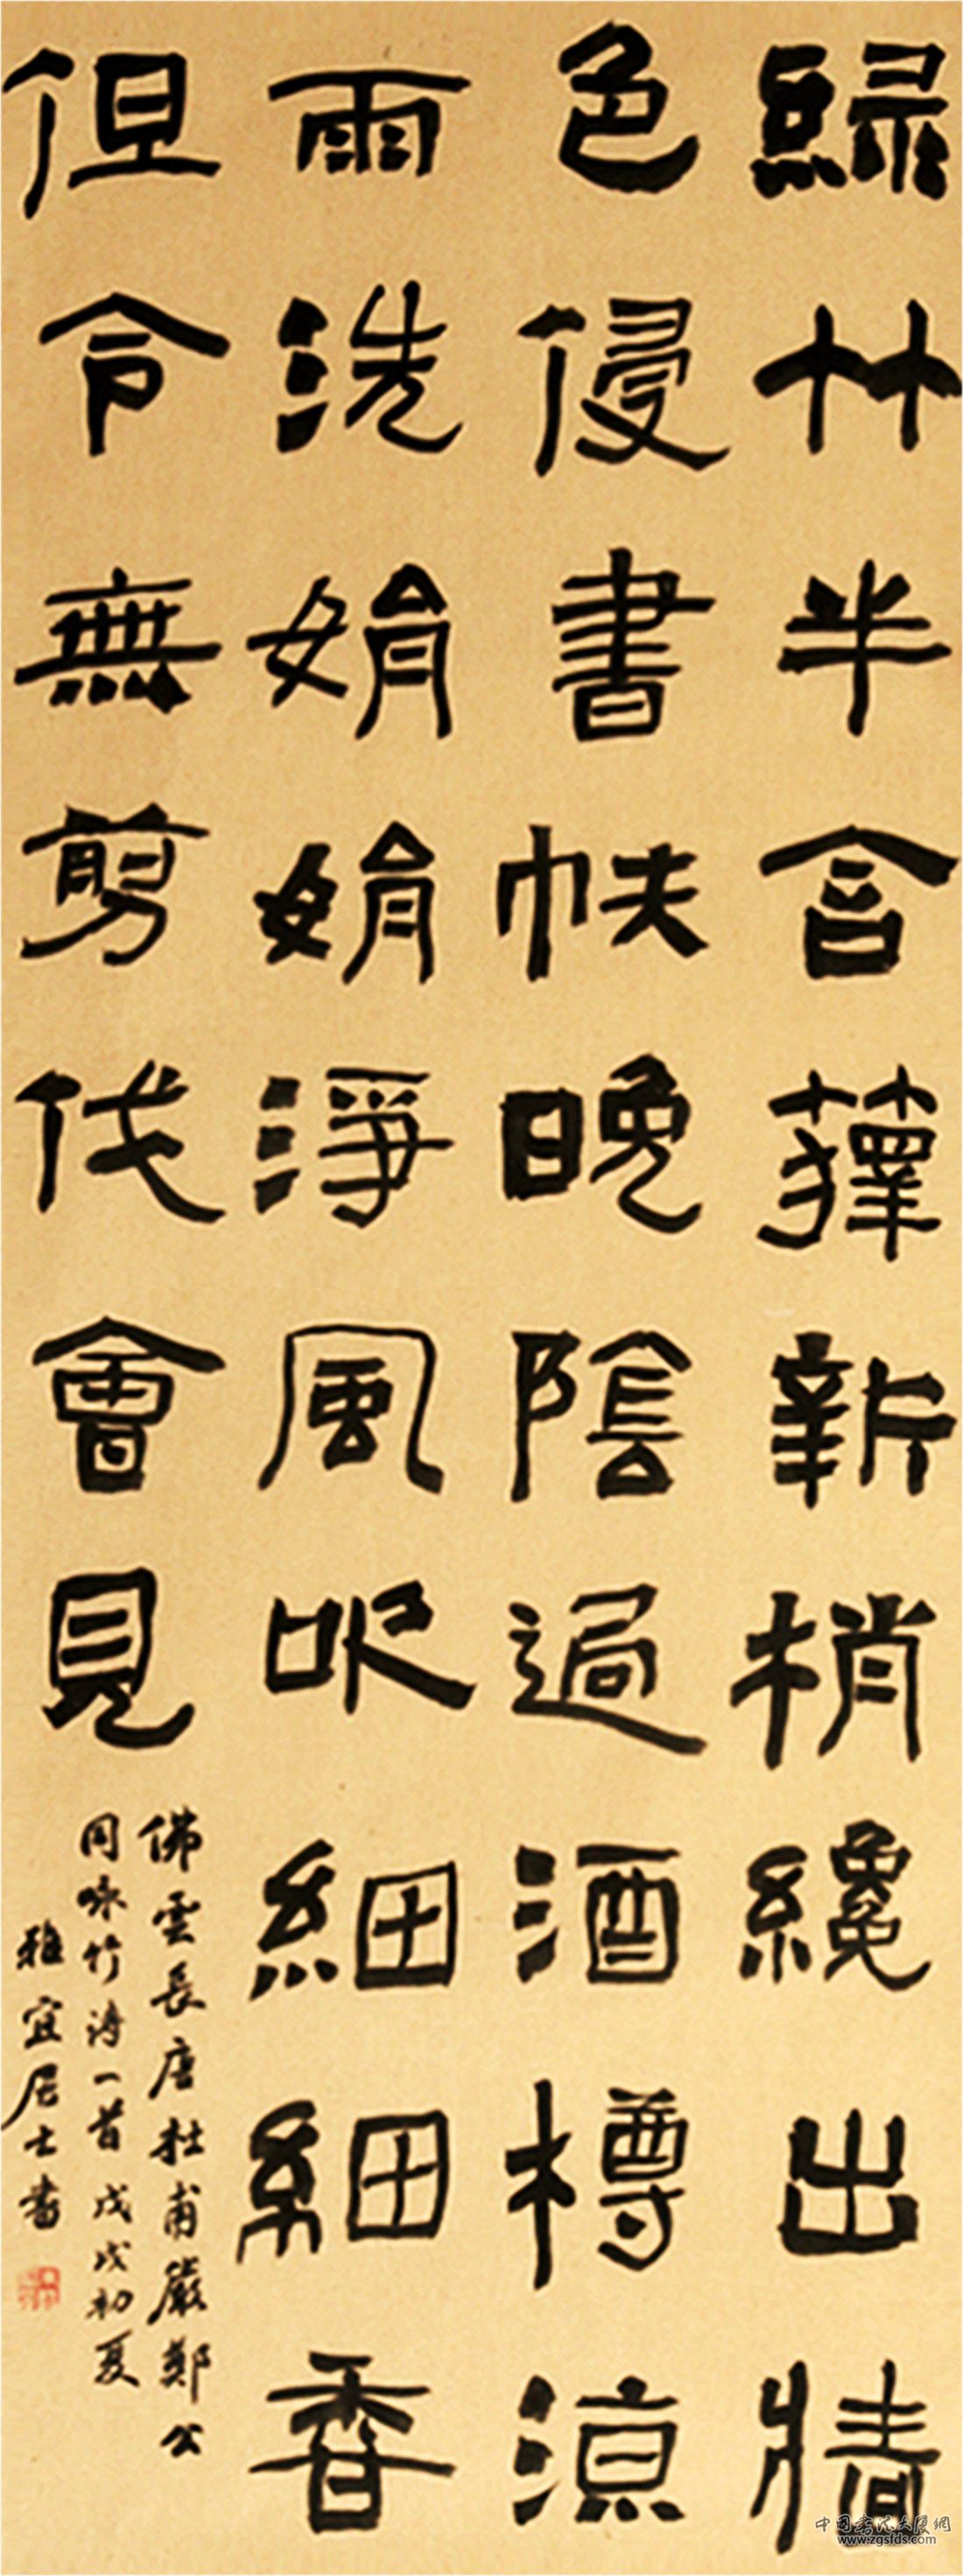 綠竹半含籜新梢纔出牆
色侵書帙晚陰過酒樽涼
雨洗娟娟淨風吹細細香
但令無剪伐會見
佛雲長唐杜甫嚴鄭公
同咏竹詩一首戊戌初夏
雅宜居士書
中国书法大厦網
www.zgsfds.com